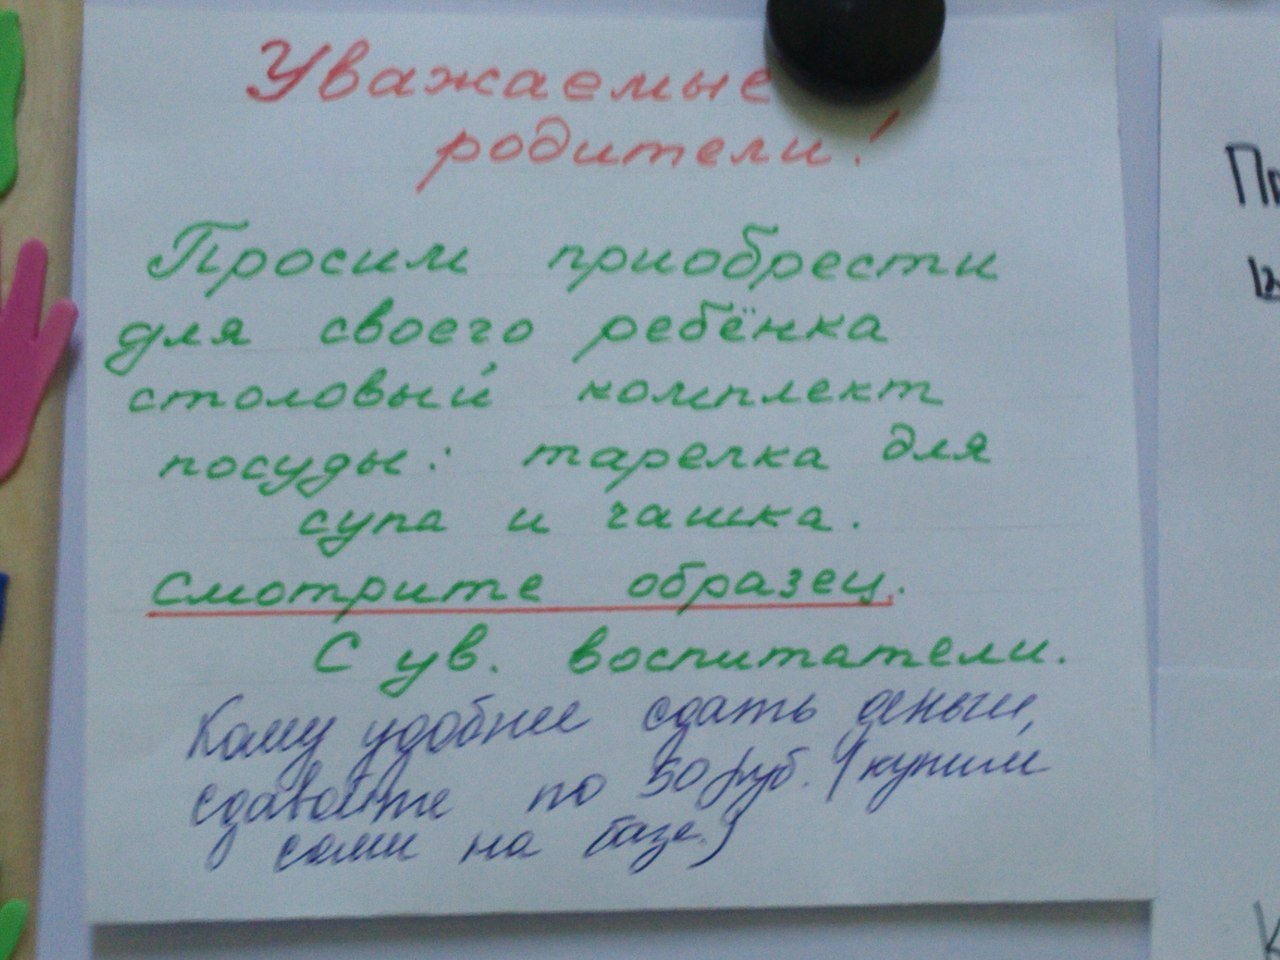 Уважаемые
родители!
Просим приобрести
для своего ребёнка
столовый комплект
посуды: тарелка для
супа и чашка.
Смотрите образец.
С ув. воспитатели.
Кому удобнее сдать деньги,
сдавайте по 50 руб. (купим
сами на базе.)